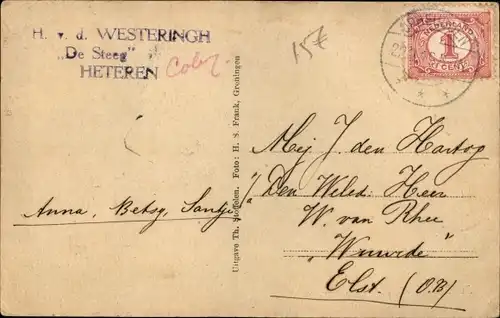 H. v. d. WESTERINGH
„De Steeg"
HETEREN
15€
NEDERLAND
1
CENT
Uitgave Th. Stoffolen. Foto: H. S. Frank, Groningen
Anna, Betsy, Santje
Mej J. den Hartog
p/a Den Weled. Heer
W. van Rhee
„Wuwede"
Elst. (O.B)